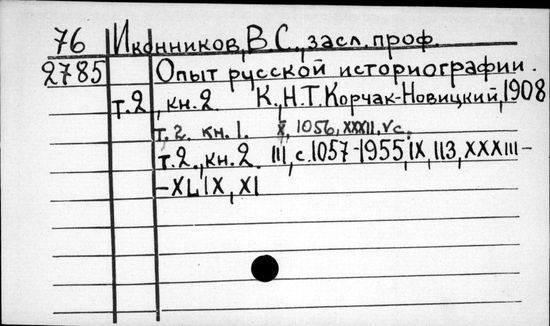 76 Иконников, В С., засл. проф.
2785 Опыт русской историографии.
т. 2, кн. 2 К., Н. Т. Корчак-Новицкий, 1908
т. 2. кн. 1. X, 1056, XXXII, V с.
т. 2., кн. 2 III, с. 1057-1955, IX, 113, XXXIII-
-XLIX, XI